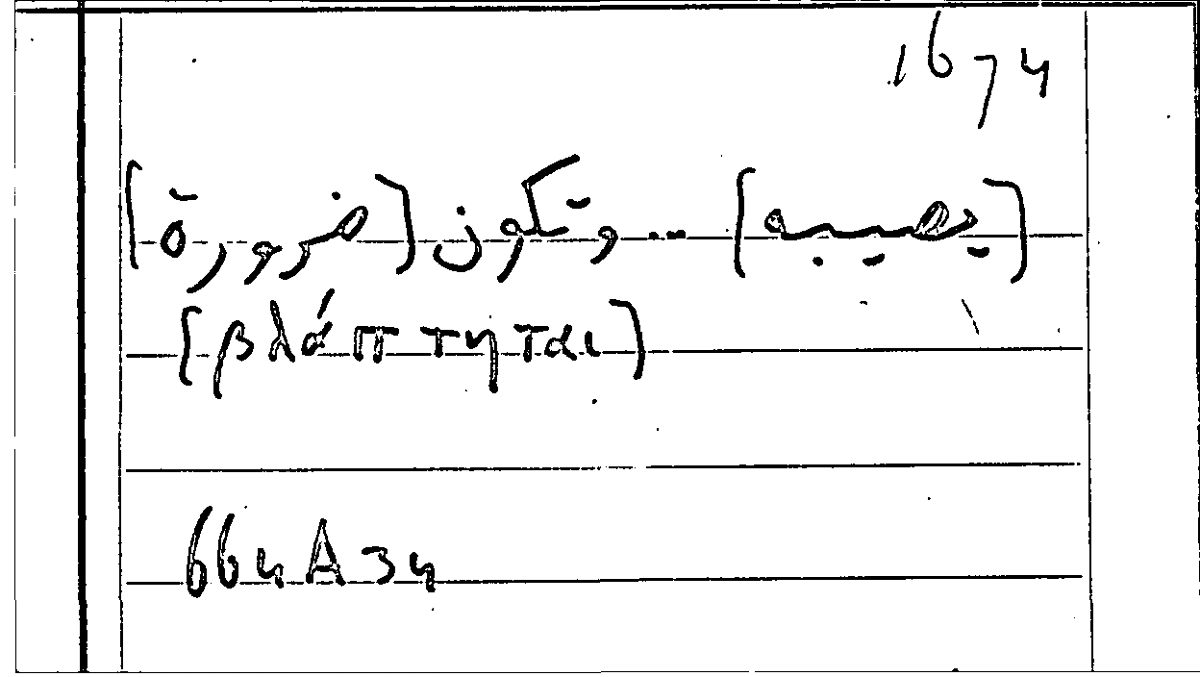 1674
[يصيبه] ... وتكون [ضرورة]
[βλάπτηται]
664A34